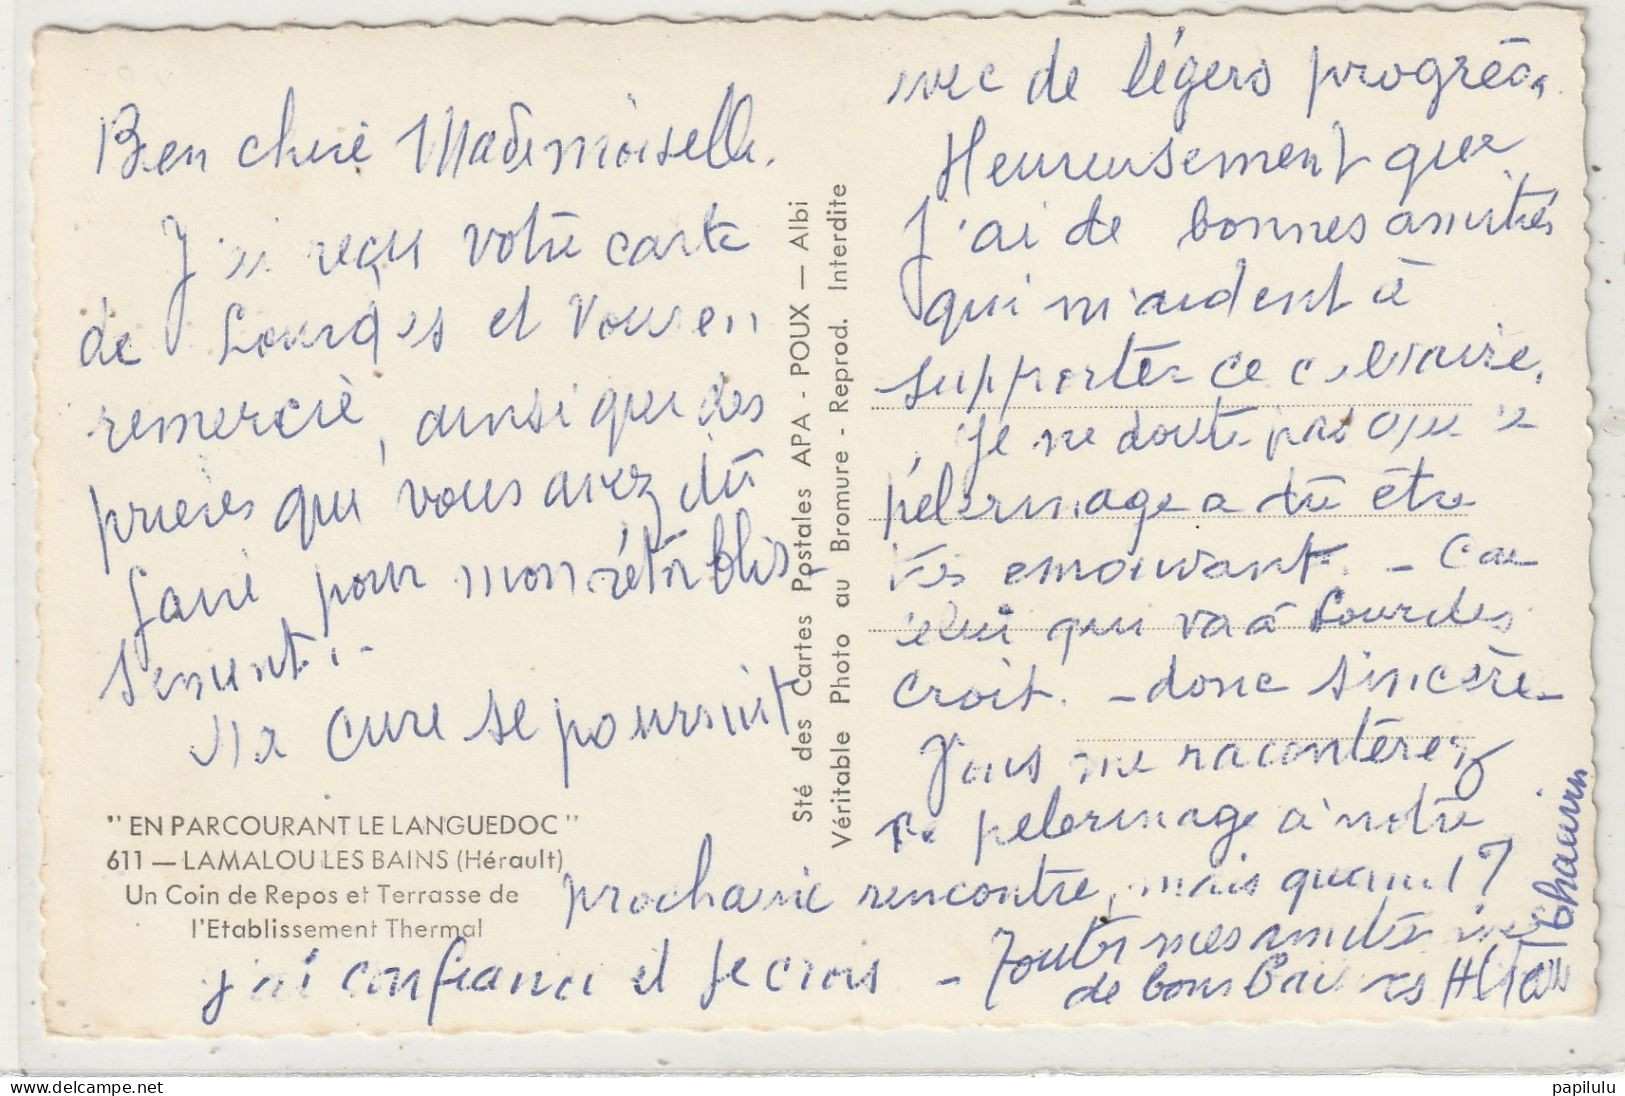 Bien chère Mademoiselle.
J'ai reçu votre carte
de Lourdes et Vous en
remercie, ainsi que des
prières que vous avez dû
faire pour mon rétablis-
sement.-
Ma cure se poursuit
avec de légers progrès.
Heureusement que
J'ai de bonnes amitiés
qui m'aident à
supporter ce calvaire.
Je ne doute pas que ce
pélerinage a dû être
très émouvant. - Car
celui qui va à Lourdes
croit. - donc sincère-
Vous me raconterez
ce pélerinage à notre
prochaine rencontre, mais quand ?
j'ai confiance et Je crois -
Toutes mes amitiés
de bons Baisers
"EN PARCOURANT LE LANGUEDOC"
611 — LAMALOU LES BAINS (Hérault)
Un Coin de Repos et Terrasse de
l'Etablissement Thermal
Sté des Cartes Postales APA - POUX — Albi
Véritable Photo au Bromure - Reprod. Interdite
papilulu